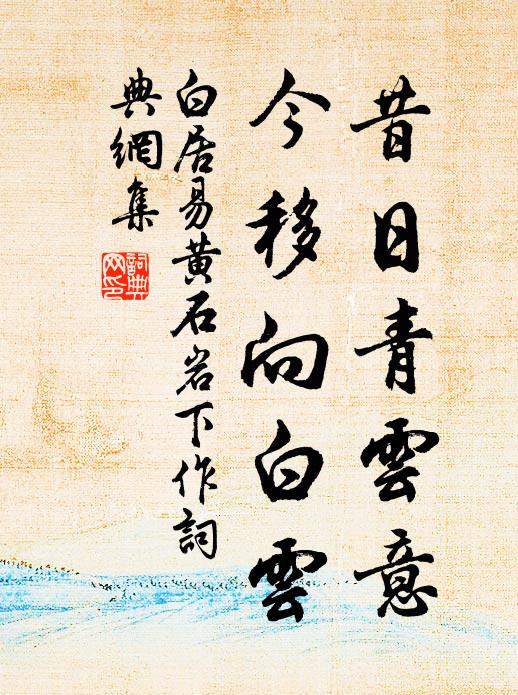 昔日青雲意
今移向白雲
白居易黄石岩下作詞
典網集
詞典网印